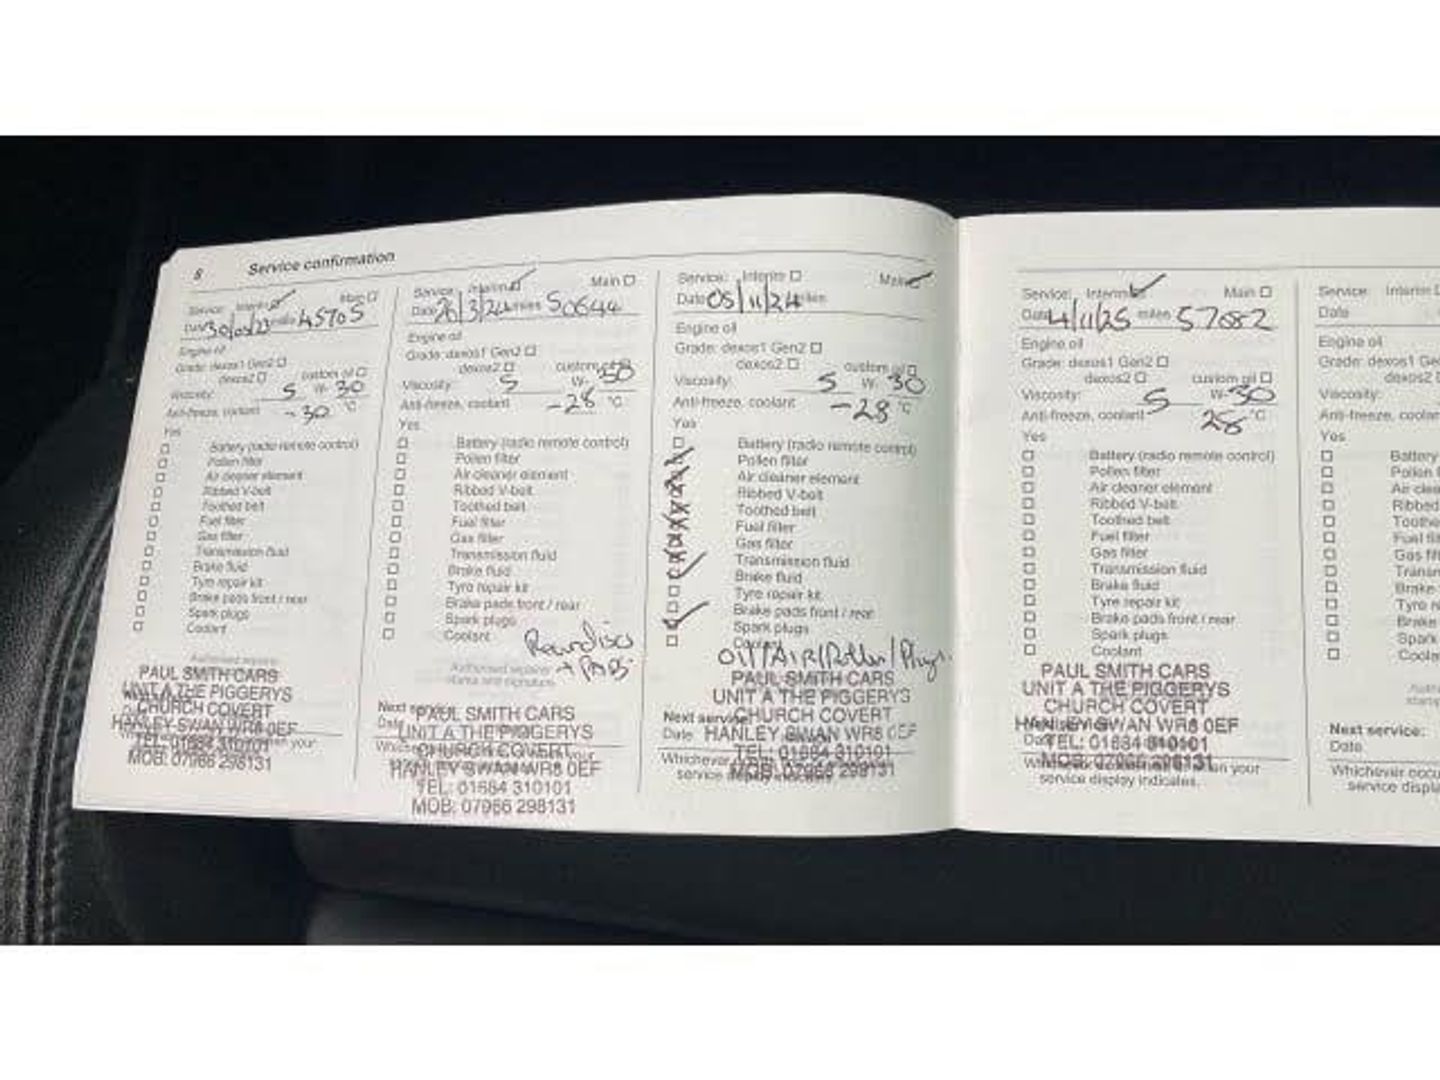 8 Service confirmation
Service: Interim Main
Date 30/03/23 miles 45705
Engine oil
Grade: dexos1 Gen2
dexos2 custom oil
Viscosity: 5 W- 30
Anti-freeze, coolant -30 °C
Yes
Battery (radio remote control)
Pollen filter
Air cleaner element
Ribbed V-belt
Toothed belt
Fuel filter
Gas filter
Transmission fluid
Brake fluid
Tyre repair kit
Brake pads front / rear
Spark plugs
Coolant
Authorised repairer
PAUL SMITH CARS
UNIT A THE PIGGERYS
CHURCH COVERT
HANLEY SWAN WR8 0EF
TEL: 01684 310101
MOB: 07966 298131
Service: Interim Main
Date 26/3/24 miles 50644
Engine oil
Grade: dexos1 Gen2
dexos2 custom oil
Viscosity: 5 W- 30
Anti-freeze, coolant -28 °C
Yes
Battery (radio remote control)
Pollen filter
Air cleaner element
Ribbed V-belt
Toothed belt
Fuel filter
Gas filter
Transmission fluid
Brake fluid
Tyre repair kit
Brake pads front / rear
Spark plugs
Coolant
+ PADS
Authorised repairer
stamp and signature
Next service:
Date
PAUL SMITH CARS
UNIT A THE PIGGERYS
CHURCH COVERT
HANLEY SWAN WR8 0EF
TEL: 01684 310101
MOB: 07966 298131
Service: Interim Main
Date 05/11/24 miles
Engine oil
Grade: dexos1 Gen2
dexos2 custom oil
Viscosity: 5 W- 30
Anti-freeze, coolant -28 °C
Yes
Battery (radio remote control)
Pollen filter
Air cleaner element
Ribbed V-belt
Toothed belt
Fuel filter
Gas filter
Transmission fluid
Brake fluid
Tyre repair kit
Brake pads front / rear
Spark plugs
Coolant
Oil/AIR/Pollen/Plugs
PAUL SMITH CARS
UNIT A THE PIGGERYS
Next service: CHURCH COVERT
Date HANLEY SWAN WR8 0EF
TEL: 01684 310101
Whichever
MOB: 07966 298131
service display indicates.
Service: Interim Main
Date 4/11/25 miles 57682
Engine oil
Grade: dexos1 Gen2
dexos2 custom oil
Viscosity: 5 W- 30
Anti-freeze, coolant 28 °C
Yes
Battery (radio remote control)
Pollen filter
Air cleaner element
Ribbed V-belt
Toothed belt
Fuel filter
Gas filter
Transmission fluid
Brake fluid
Tyre repair kit
Brake pads front / rear
Spark plugs
Coolant
PAUL SMITH CARS
UNIT A THE PIGGERYS
CHURCH COVERT
HANLEY SWAN WR8 0EF
TEL: 01684 310101
MOB: 07966 298131
service display indicates.
Service: Interim
Date
Engine oil
Grade: dexos1 Ge
dexos2
Viscosity:
Anti-freeze, coolan
Yes
Battery
Pollen
Air clea
Ribbed
Toothe
Fuel fil
Gas fil
Transm
Brake
Tyre re
Brake
Spark
Coola
Next service:
Date
Whichever occu
service displa